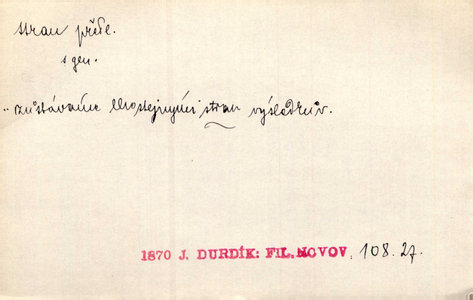 stran předl.
s gen.
.. zůstáváme lhostejnými stran výsledkův.
1870 J. DURDÍK: FIL. NOVOV. 108.27.